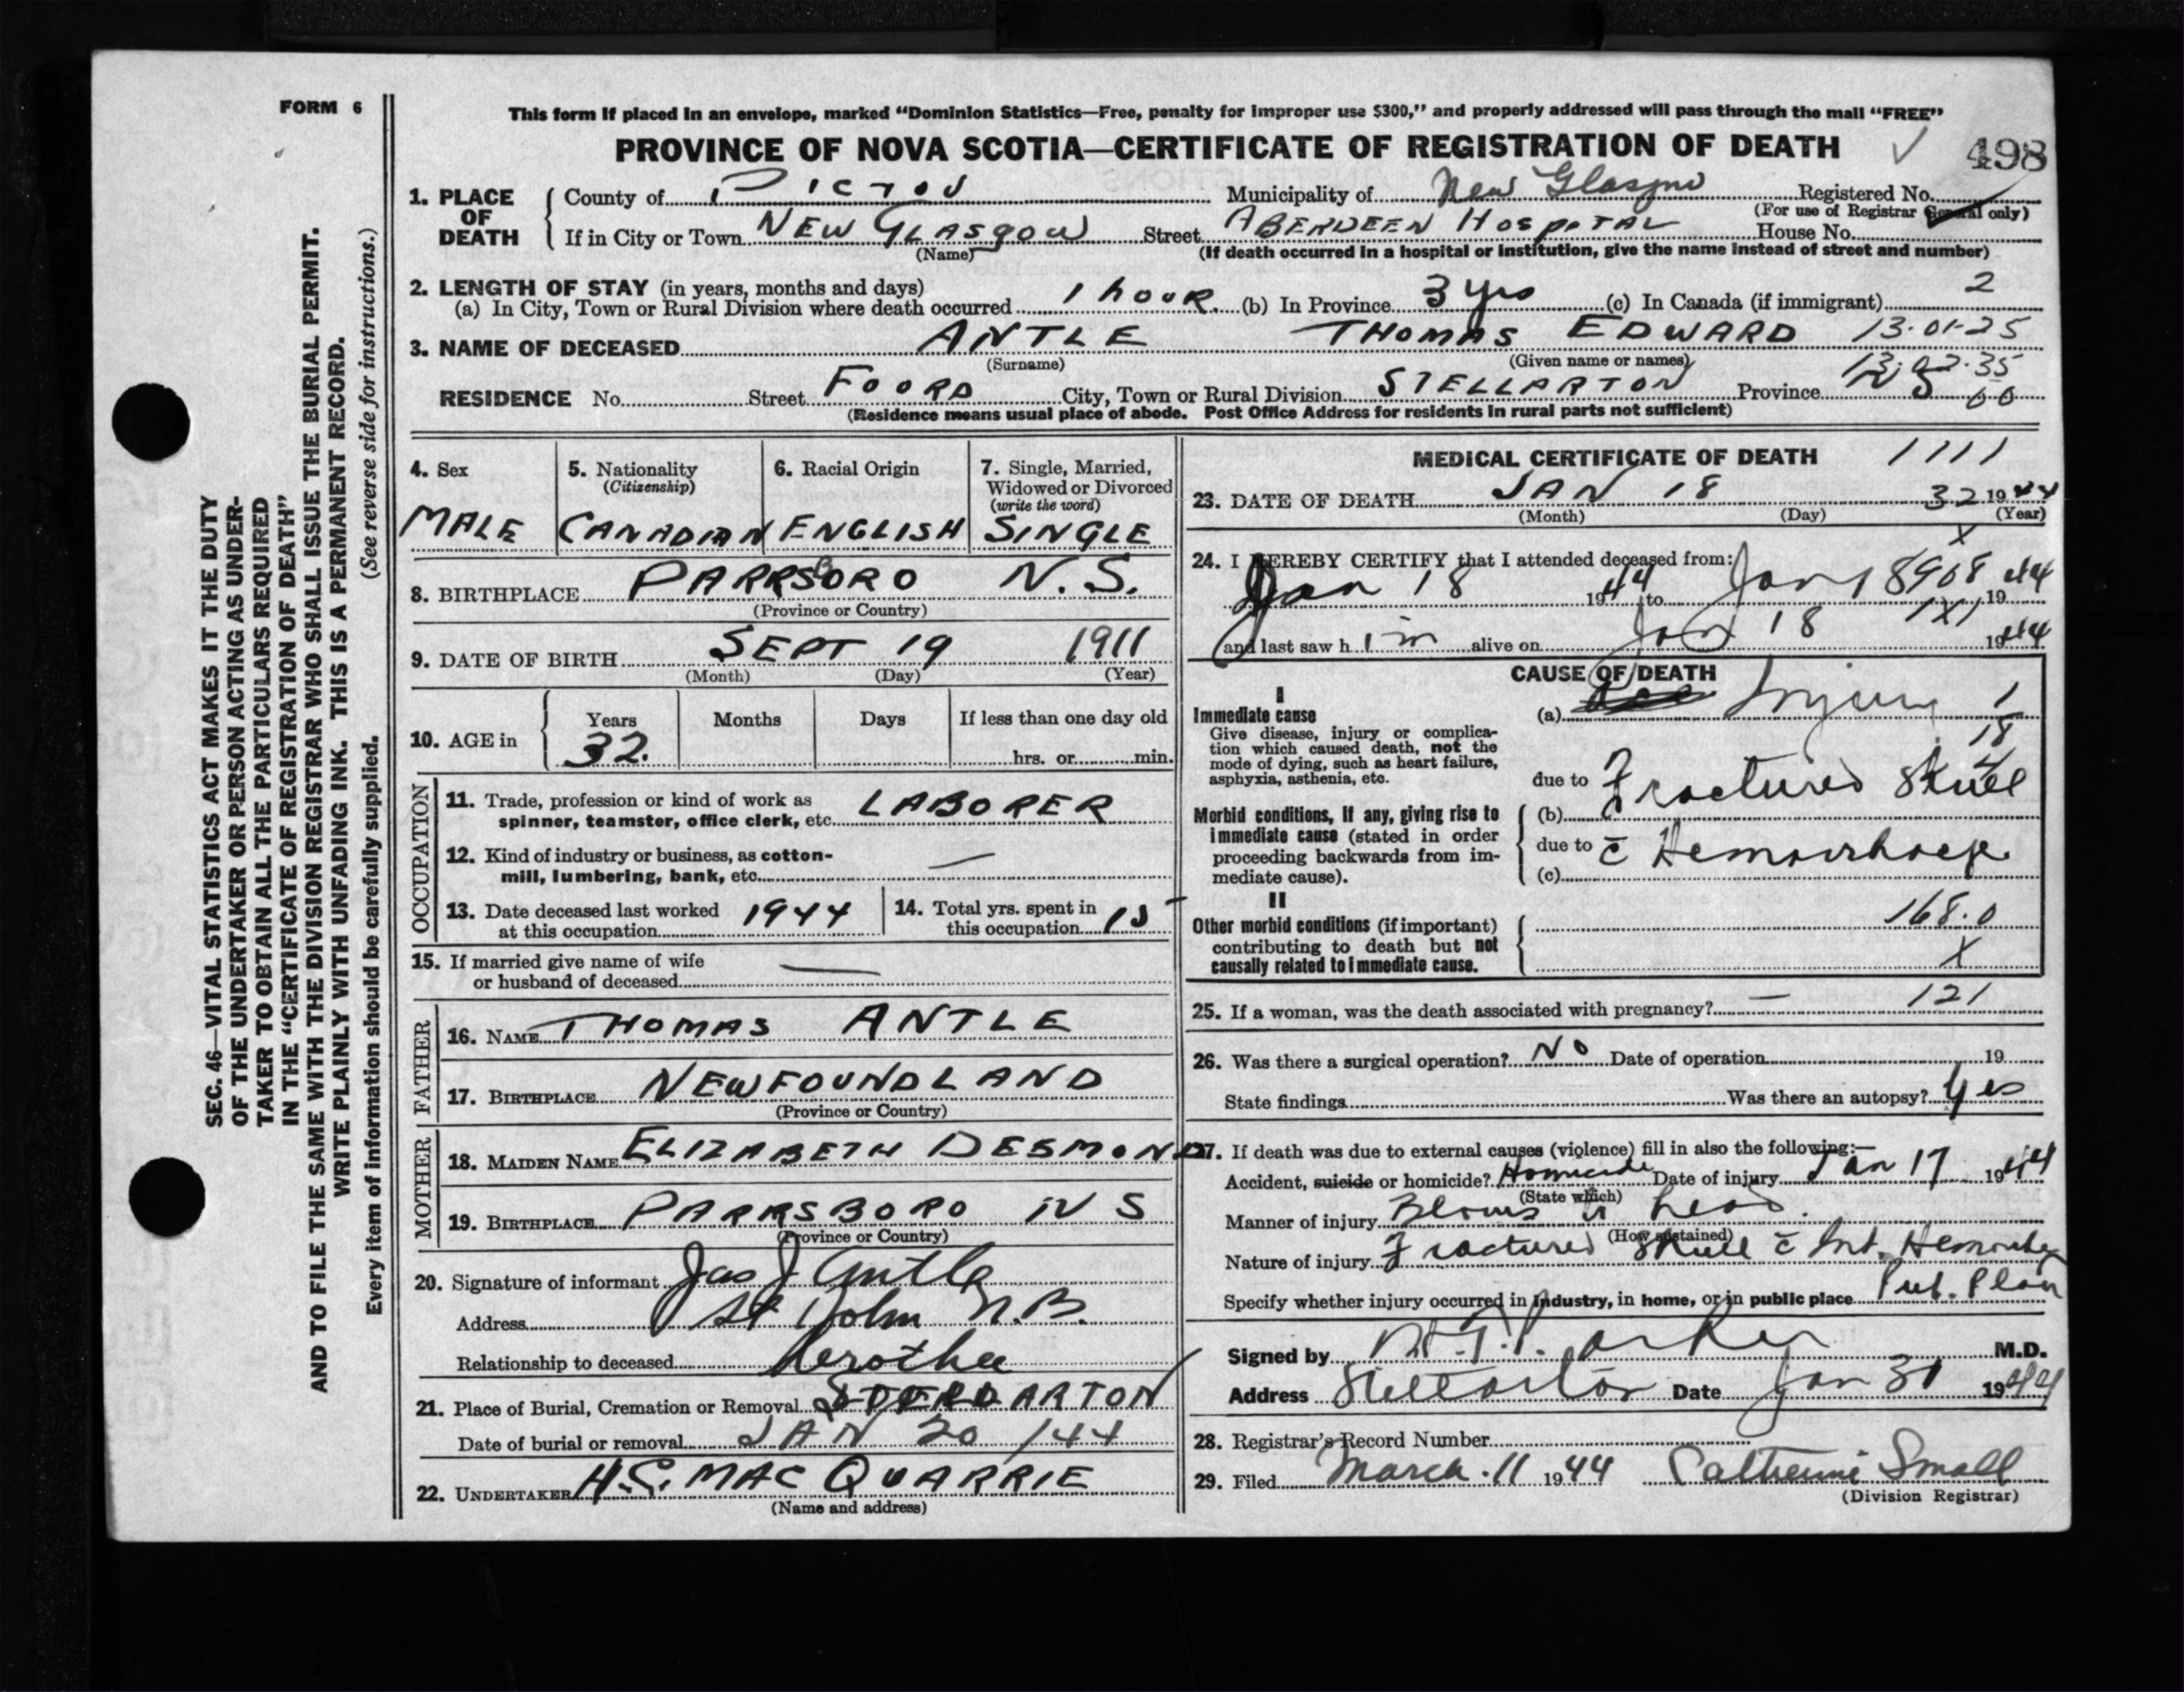 FORM 6
This form if placed in an envelope, marked “Dominion Statistics—Free, penalty for improper use $300,” and properly addressed will pass through the mail “FREE”
PROVINCE OF NOVA SCOTIA—CERTIFICATE OF REGISTRATION OF DEATH 498
1. PLACE OF DEATH
County of Pictou Municipality of New Glasgow Registered No.
(For use of Registrar General only)
If in City or Town NEW GLASGOW Street ABERDEEN HOSPITAL House No.
(Name) (If death occurred in a hospital or institution, give the name instead of street and number)
2. LENGTH OF STAY (in years, months and days) 2
(a) In City, Town or Rural Division where death occurred 1 hour. (b) In Province 3 yrs (c) In Canada (if immigrant)
3. NAME OF DECEASED ANTLE THOMAS EDWARD 13·01·25
(Surname) (Given name or names) 13·02·35
RESIDENCE No. Street FOORD City, Town or Rural Division STELLARTON Province NS 60
(Residence means usual place of abode. Post Office Address for residents in rural parts not sufficient)
4. Sex MALE
5. Nationality (Citizenship) CANADIAN
6. Racial Origin ENGLISH
7. Single, Married, Widowed or Divorced (write the word) SINGLE
8. BIRTHPLACE PARRSBORO N.S.
(Province or Country)
9. DATE OF BIRTH SEPT 19 1911
(Month) (Day) (Year)
10. AGE in Years 32. Months Days If less than one day old hrs. or min.
OCCUPATION
11. Trade, profession or kind of work as spinner, teamster, office clerk, etc. LABORER
12. Kind of industry or business, as cotton-mill, lumbering, bank, etc. —
13. Date deceased last worked at this occupation 1944
14. Total yrs. spent in this occupation 15
15. If married give name of wife or husband of deceased —
FATHER
16. NAME THOMAS ANTLE
17. BIRTHPLACE NEWFOUNDLAND
(Province or Country)
MOTHER
18. MAIDEN NAME ELIZABETH DESMOND
19. BIRTHPLACE PARRSBORO NS
(Province or Country)
20. Signature of informant Jas J Antle
Address St John N.B.
Relationship to deceased Brother
21. Place of Burial, Cremation or Removal STELLARTON
Date of burial or removal JAN 20 /44
22. UNDERTAKER H.S. MACQUARRIE
(Name and address)
MEDICAL CERTIFICATE OF DEATH 1111
23. DATE OF DEATH JAN 18 32 1944
(Month) (Day) (Year)
X
24. I HEREBY CERTIFY that I attended deceased from:
Jan 18 1944 to Jan 18 1944
and last saw him alive on Jan 18 1944
CAUSE OF DEATH
I
Immediate cause
Give disease, injury or complication which caused death, not the mode of dying, such as heart failure, asphyxia, asthenia, etc.
(a) Injury 1
18
due to Fractured Skull
Morbid conditions, if any, giving rise to immediate cause (stated in order proceeding backwards from immediate cause).
(b)
due to c̄ Hemorrhage
(c)
II
Other morbid conditions (if important) contributing to death but not causally related to immediate cause.
168.0
X
25. If a woman, was the death associated with pregnancy? — 121
26. Was there a surgical operation? No Date of operation 19
State findings Was there an autopsy? Yes
27. If death was due to external causes (violence) fill in also the following:—
Accident, suicide or homicide? Homicide Date of injury Jan 17 1944
(State which)
Manner of injury Blows to head.
(How sustained)
Nature of injury Fractured Skull c̄ Int. Hemorrhage
Specify whether injury occurred in industry, in home, or in public place Pub. Place
Signed by Parker M.D.
Address Stellarton Date Jan 31 1944
28. Registrar’s Record Number
29. Filed March 11 1944 Catherine Small
(Division Registrar)
SEC. 46—VITAL STATISTICS ACT MAKES IT THE DUTY
OF THE UNDERTAKER OR PERSON ACTING AS UNDER-
TAKER TO OBTAIN ALL THE PARTICULARS REQUIRED
IN THE “CERTIFICATE OF REGISTRATION OF DEATH”
AND TO FILE THE SAME WITH THE DIVISION REGISTRAR WHO SHALL ISSUE THE BURIAL PERMIT.
WRITE PLAINLY WITH UNFADING INK. THIS IS A PERMANENT RECORD.
(See reverse side for instructions.)
Every item of information should be carefully supplied.